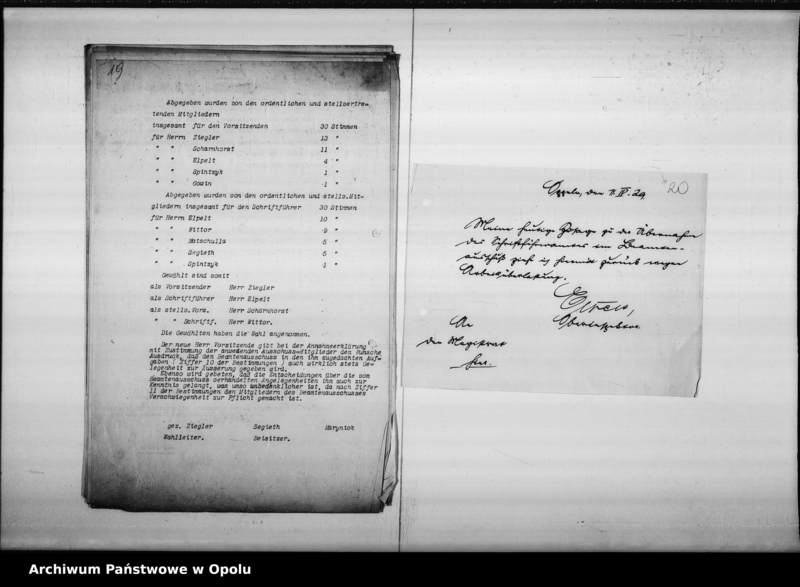 19
Abgegeben wurden von den ordentlichen und stellvertre-
tenden Mitgliedern
insgesamt für den Vorsitzenden 30 Stimmen
für Herrn Ziegler 13 "
" " Scharnhorst 11 "
" " Elpelt 4 "
" " Spintzyk 1 "
" " Gowin 1 "
Abgegeben wurden von den ordentlichen und stellv.Mit-
gliedern insgesamt für den Schriftführer 30 Stimmen
für Herrn Elpelt 10 "
" " Wittor 9 "
" " Matschulla 5 "
" " Segieth 5 "
" " Spintzyk 1 "
Gewählt sind somit
als Vorsitzender Herr Ziegler
als Schriftführer Herr Elpelt
als stellv.Vors. Herr Scharnhorst
" " Schriftf. Herr Wittor.
Die Gewählten haben die Wahl angenommen.
Der neue Herr Vorsitzende gibt bei der Annahmeerklärung
mit Zustimmung der anwesenden Ausschuss-Mitglieder dem Wunsche
Ausdruck, daß dem Beamtenausschuss in den ihm zugedachten Auf-
gaben ( Ziffer 10 der Bestimmungen ) auch wirklich stets Ge-
legenheit zur Äusserung gegeben wird.
Ebenso wird gebeten, daß die Entscheidungen über die vom
Beamtenausschuss verhandelten Angelegenheiten ihm auch zur
Kenntnis gelangt, was umso unbedenklicher ist, da nach Ziffer
11 der Bestimmungen den Mitgliedern des Beamtenausschusses
Verschwiegenheit zur Pflicht gemacht ist.
gez. Ziegler Segieth
Wahlleiter. Beisitzer.
20
Oppeln, den
Meine heutige Zusage zu der Übernahme
des Schriftführeramtes im Beamten-
ausschuß ziehe ich hiermit zurück wegen
Arbeitsüberlastung.
An
den Magistrat
hier.
Archiwum Państwowe w Opolu